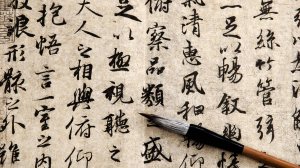 無絲竹管弦
足以暢敘幽
氣清惠風和暢
俯察品類之盛
足以極視聽之
夫人之相與俯仰
抱悟言一室之內
浪形骸之外雖